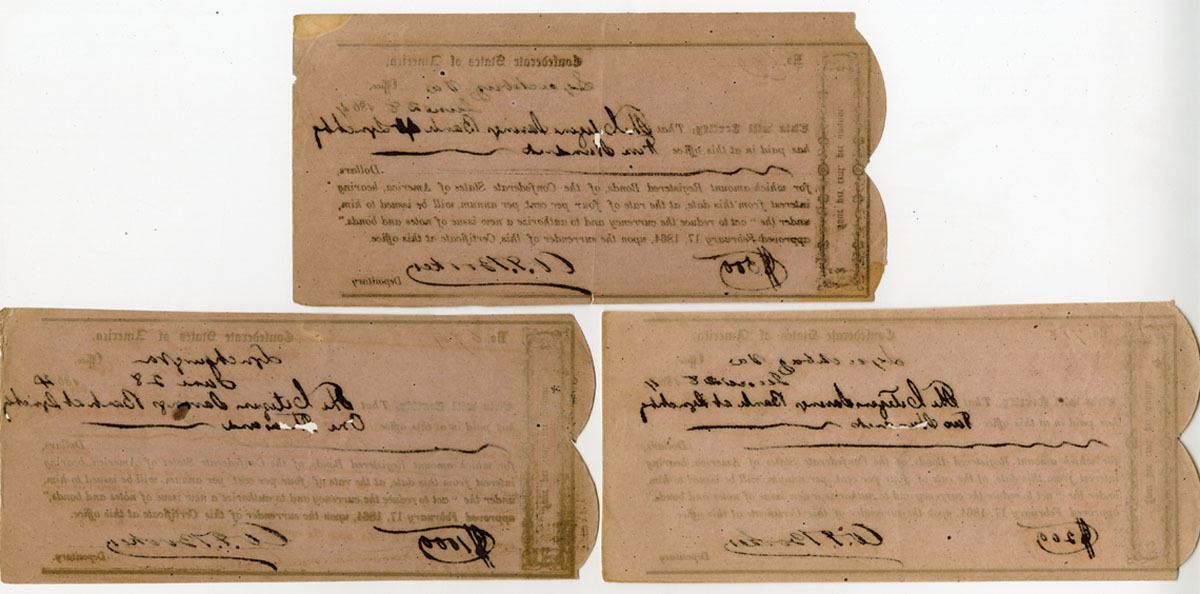 No.
Confederate States of America.
Lynchburg Va Office
June 28 1864
This will Certify, That The Citizens Savings Bank of Lynchbg
has paid in at this office Five Hundred
Dollars,
for which amount Registered Bonds, of the Confederate States of America, bearing
interest from this date, at the rate of four per cent. per annum, will be issued to him,
under the "act to reduce the currency and to authorize a new issue of notes and bonds,"
approved February 17, 1864, upon the surrender of this Certificate at this office.
$500
Depositary
four per cent. per annum
No.
Confederate States of America.
Lynchburg Va Office
June 28 1864
This will Certify, That The Citizens Savings Bank at Lynchbg
has paid in at this office One Thousand
Dollars,
for which amount Registered Bonds, of the Confederate States of America, bearing
interest from this date, at the rate of four per cent. per annum, will be issued to him,
under the "act to reduce the currency and to authorize a new issue of notes and bonds,"
approved February 17, 1864, upon the surrender of this Certificate at this office.
$1000
Depositary.
No.
Confederate States of America.
Lynchburg Va Office
June 28 1864
This will Certify, That The Citizens Savings Bank at Lynchbg
has paid in at this office Two Hundred
Dollars,
for which amount Registered Bonds, of the Confederate States of America, bearing
interest from this date, at the rate of four per cent. per annum, will be issued to him,
under the "act to reduce the currency and to authorize a new issue of notes and bonds,
approved February 17, 1864, upon the surrender of this Certificate at this office.
$200
Depositary